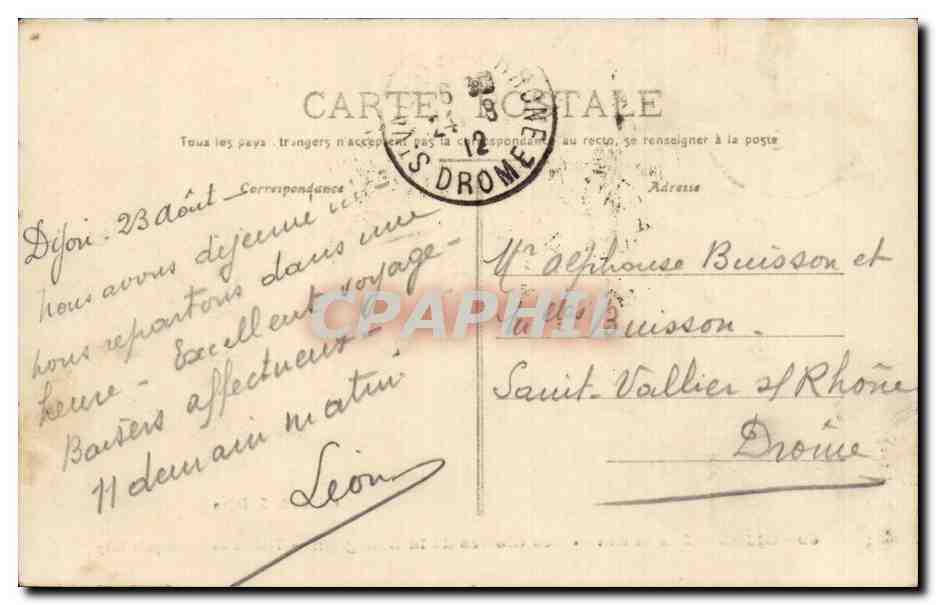 CARTE POSTALE
Tous les pays étrangers n'acceptent pas la correspondance au recto, se renseigner à la poste
Correspondance
Adresse
DROME
12
8
CPAPHIL
Dijon - 23 Août -
Nous avons déjeuné ici -
nous repartons dans une
heure - Excellent voyage -
Baisers affectueux &
à demain matin.
Léon
Mr Alphonse Buisson et
Mlles Buisson.
Saint-Vallier s/Rhône
Drôme